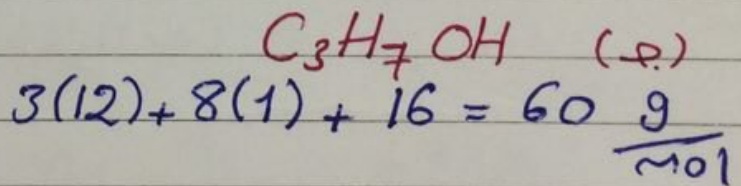 C₃H₇OH (م)
3(12) + 8(1) + 16 = 60 g/mol